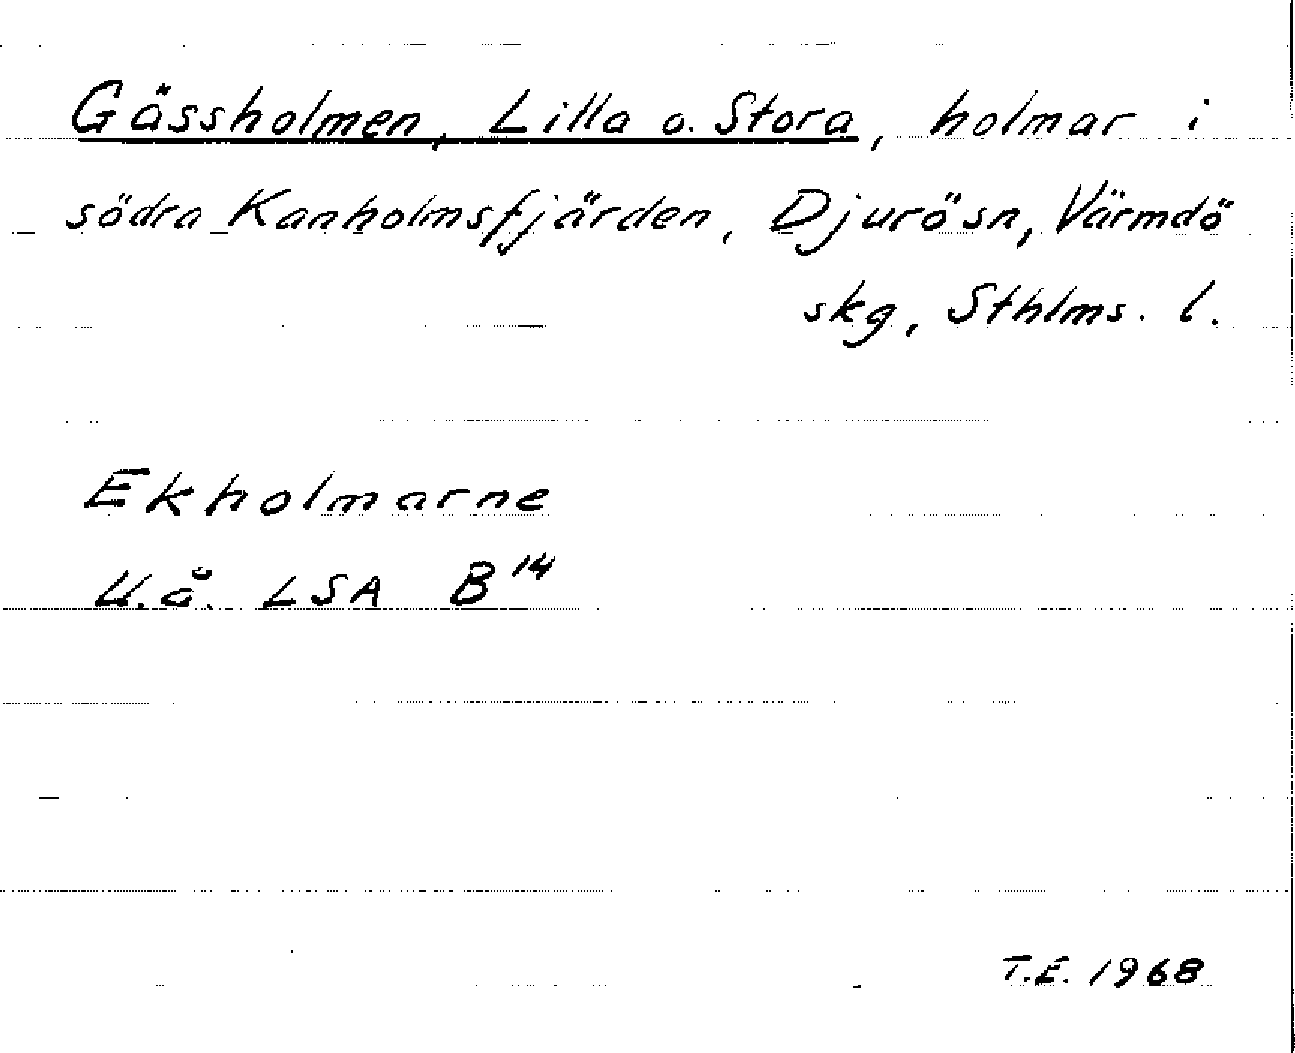 Gässholmen, Lilla o. Stora, holmar i
södra Kanholmsfjärden, Djurösn, Värmdö
skg, Sthlms. l.
Ekholmarne
U.å. LSA B 14
T.E. 1968